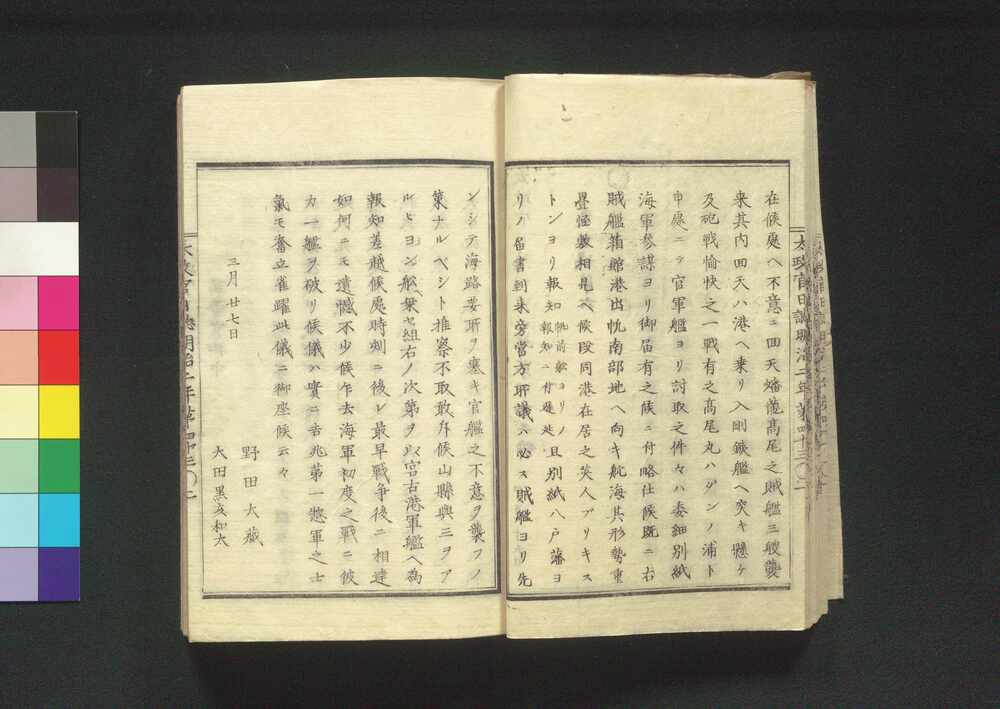 在候処ヘ不意ニ回天蟠龍高尾之賊艦三艘襲
来其内回天ハ港ヘ乗リ入甲鐵艦ヘ突キ懸ケ
及砲戦愉快之一戦有之高尾丸ハ ンノ浦ト
申處ニテ官軍艦ヨリ討取之件々ハ委細別紙
海軍参謀ヨリ御届有之候ニ付略仕候既ニ右
賊艦箱館港出帆南部地ヘ向キ航海其形勢重
畳怪敷相見ヘ候段同港在居之英人ブリキス
トンヨリ報知 報知ニ付遅延 且別紙八戸藩ヨ
リノ届書到来旁當方評議ハ必ス賊艦ヨリ先
ンシテ海路要所ヲ塞キ官艦之不意ヲ襲フノ
策ナルベシト推察不取敢斥候山縣與三ヲア
ルヒヨン船乗セ組右ノ次第ヲ以宮古港軍艦ヘ為
報知差越候處時刻ニ後レ最早戦争後ニ相達
如何ニモ遺憾不少候乍去海軍初度之戦ニ彼
カ一艦ヲ破リ候儀ハ實ニ吉兆第一惣軍之士
氣モ奮立雀躍此儀ニ御座候云々
三月廿七日
野田大蔵
大田黒亥和太
太政官日誌明治二年第四十三〇二